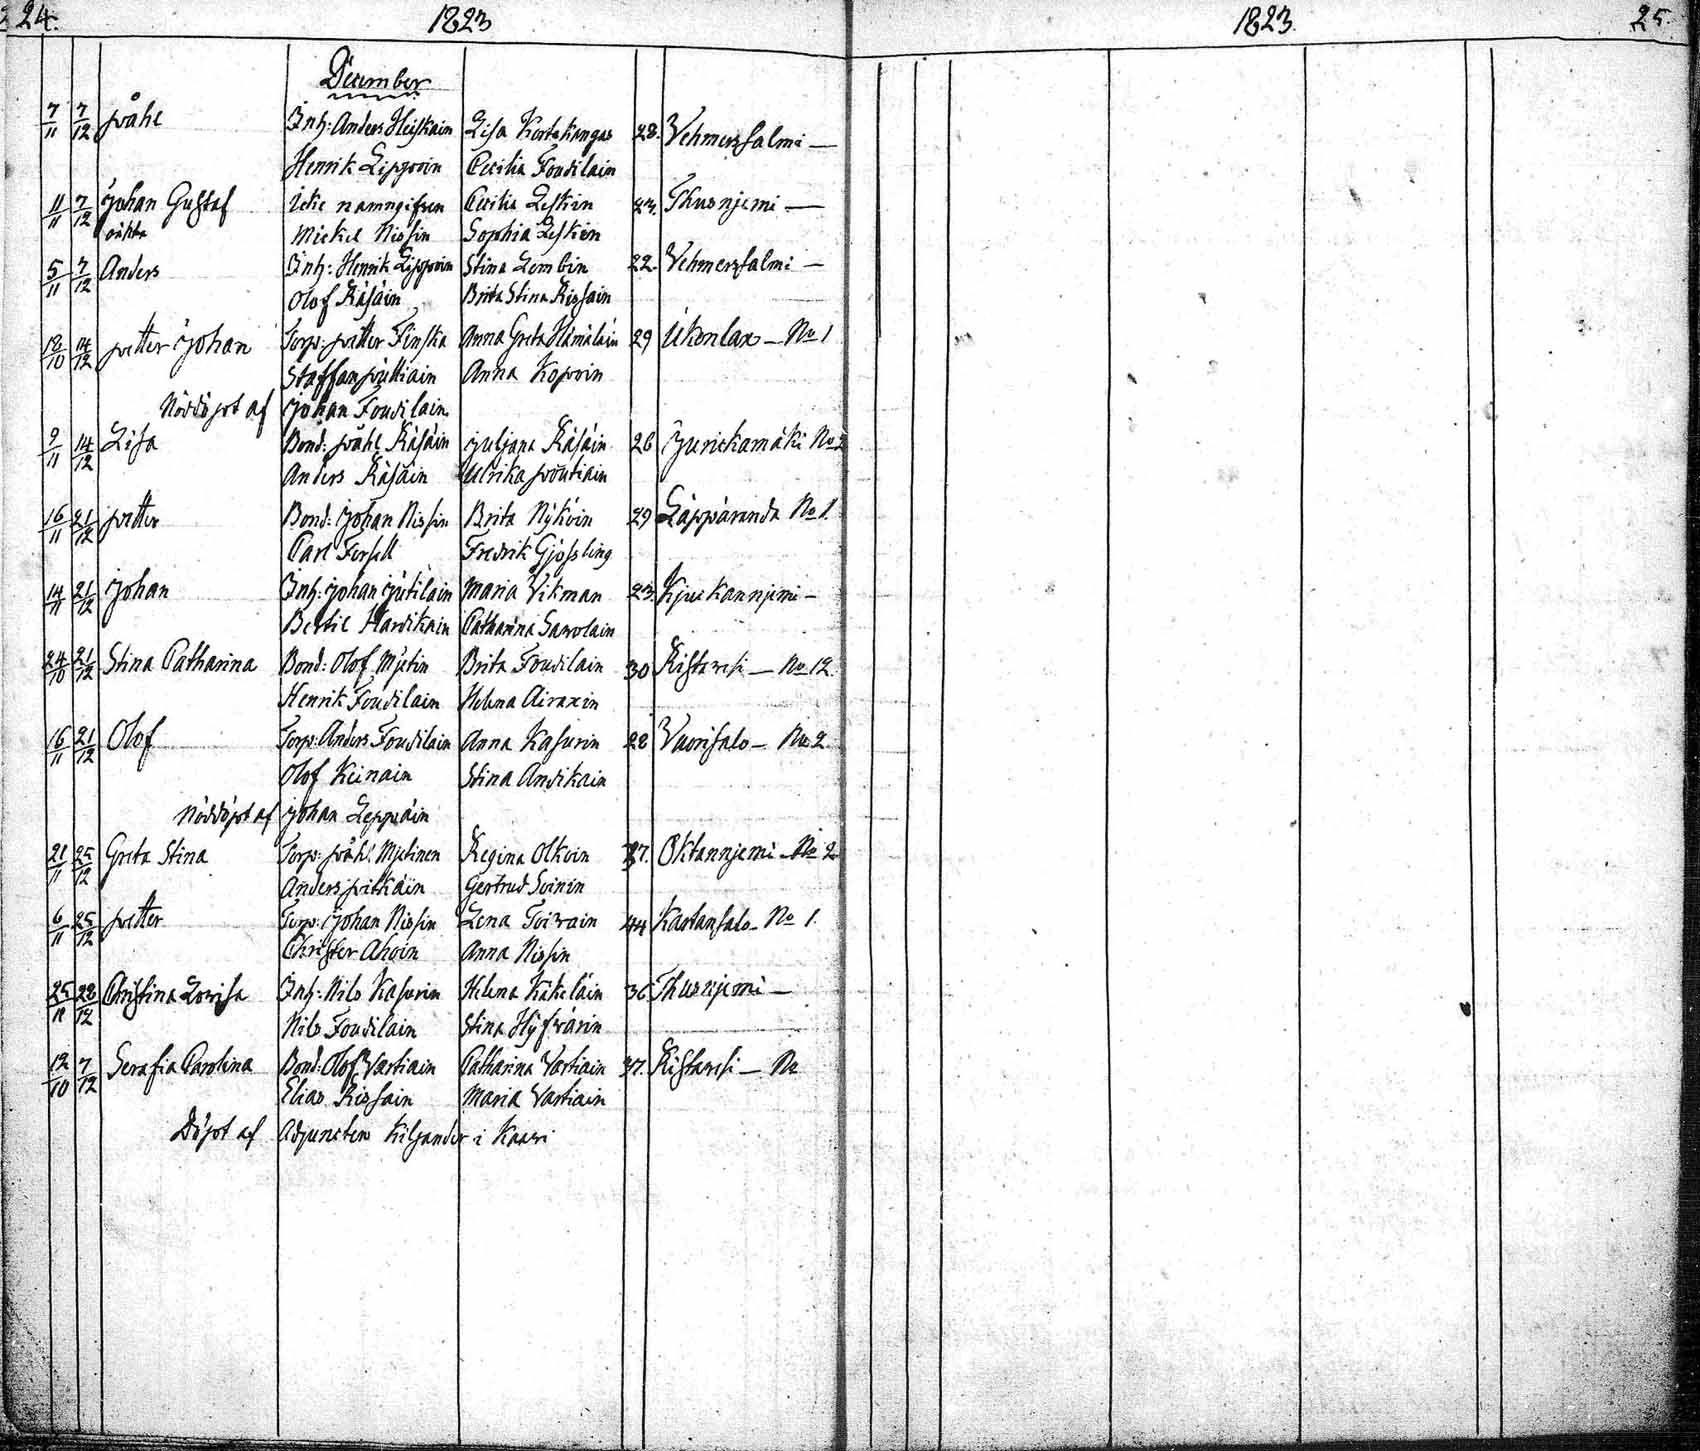 24. 1823
December
7/11 7/12 påhl Inh: Anders Heiskain Lisa Kortekangas 28. Vehmersalmi —
Henrik Lippoin Cecilia Toudilain
11/11 7/12 Johan Gustaf Icke namngifven Cecilia Leskin 24. Thusnjemi —
oäkta Mickel Nissin Sophia Leskien
5/11 7/12 Anders Inh: Henrik Lippoin Stina Lembin 22. Vehmersalmi —
Olof Räsäin Brita Stina Rissain
12/10 14/12 petter Johan Torp: petter Finska Anna Greta Hämäläin 29 Ukonlax — No 1
Staffan puttiain Anna Kopoin
Nöddöpt af Johan Toudilain
9/11 14/12 Lisa Bond: påhl Räsäin Juljana Räsäin 26 Jurickamäki No 2
Anders Räsäin Ulrika poutiain
16/11 21/12 petter Bond: Johan Nissin Brita Nykoin 29 Läppäranda No 1.
Carl Forsell Fredrik Gjössling
14/11 21/12 Johan Inh: Johan Jutilain Maria Vikman 23. Kjukannjemi —
Bertil Hardikain Catharina Savolain
24/10 21/12 Stina Catharina Bond: Olof Mjetin Brita Toudilain 30 Ristavesi — No 12.
Henrik Toudilain Helena Airaxin
16/11 21/12 Olof Torp: Anders Toudilain Anna Kasurin 28 Vuorisalo — No 2.
Olof Keinain Stina Andikain
Nöddöpt af Johan Leppäin
21/11 25/12 Greta Stina Torp: påhl Mjetinen Regina Olkoin 37. Oktannjemi — No 2
Anders pitkäin Gertrud Soinin
6/11 25/12 petter Torp: Johan Nissin Lena Toivain 44 Kaatansalo — No 1.
Christer Ahoin Anna Nissin
25/11 28/12 Christina Lovisa Inh: Nils Kasurin Helena Käkeläin 36. Thusnjemi —
Nils Toudilain Stina Hyfvärin
12/10 7/12 Serafia Carolina Bond: Olof Vartiain Catharina Vartiain 37. Ristavesi — No
Elias Rissain Maria Vartiain
Döpt af Adjuncten Kiljander i Kaavi
1823. 25.